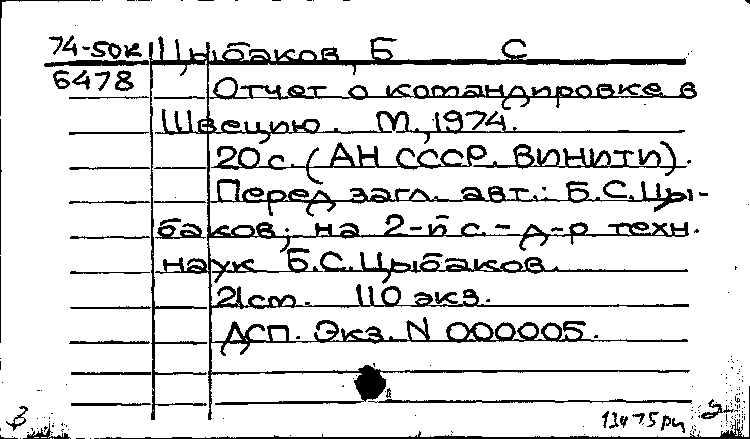 74-50к Цыбаков, Б С
6478
Отчет о командировке в
Швецию. М., 1974.
20 с. (АН СССР. ВИНИТИ).
Перед загл. авт.: Б.С.Цы-
баков; на 2-й с. - д-р техн.
наук Б.С.Цыбаков.
21 см. 110 экз.
ДСП. Экз. N 000005.